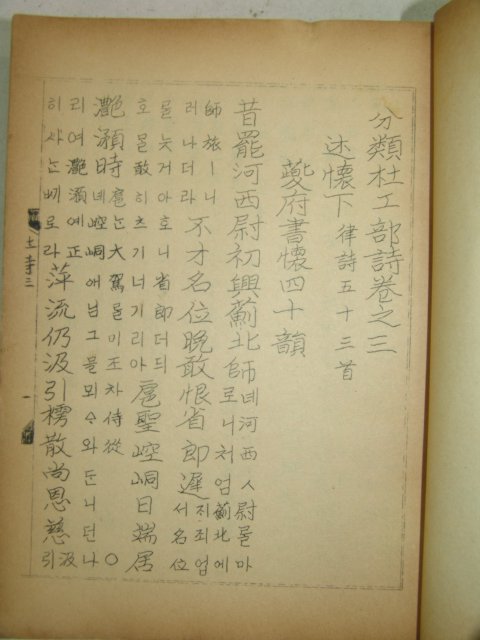 分類杜工部詩卷之三
述懷下 律詩五十三首
夔府書懷四十韻
昔罷河西尉初興薊北師 녜河西ㅅ尉를마
로니처엄薊北에
師旅ㅣ니
러나더라 不才名位晚敢恨省郎遲 지죄업
서名位
믈늣거아호니省郎더듸
호믈敢히츠기너기리아 扈聖崆峒日端居
灩澦時 扈는大駕믈미조차侍從○
녜崆峒애님그믈뫼수와둔니던나
리여灩澦예正
히사는뻬로라 萍流仍汲引樗散尚恩慈 汲
引